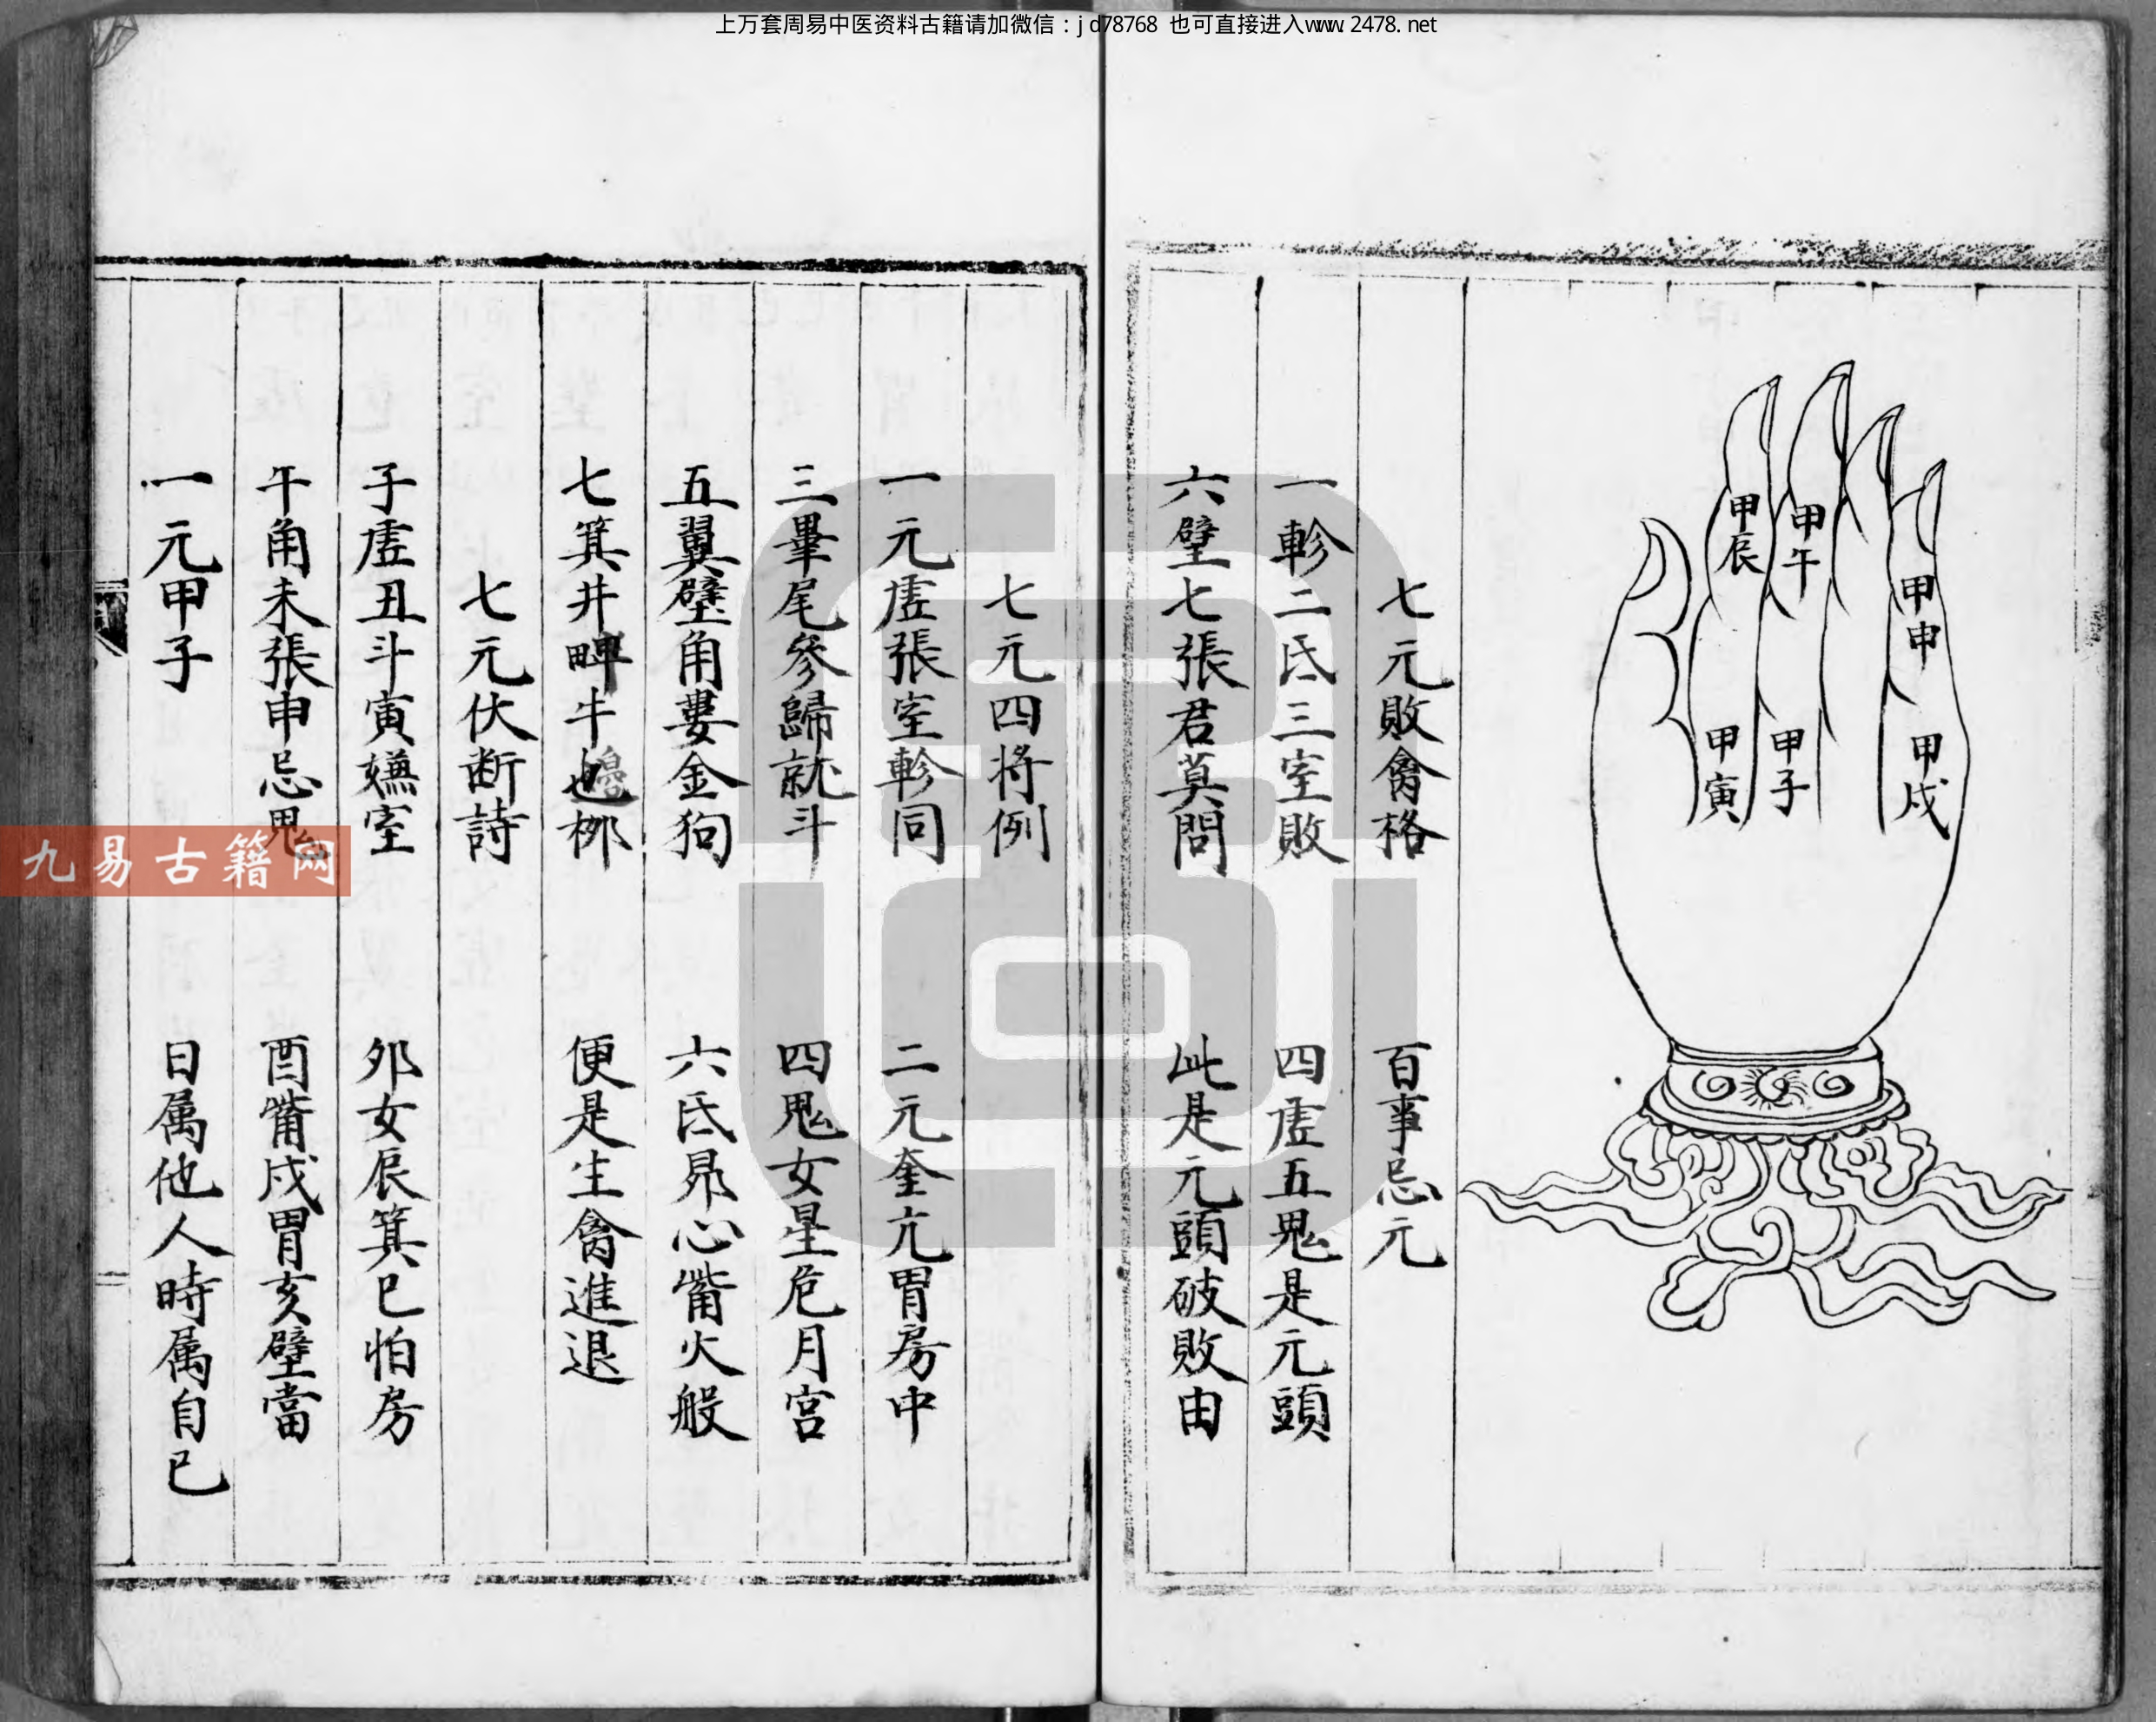 上万套周易中医资料古籍请加微信：jd78768 也可直接进入www.2478.net
甲申
甲戌
甲午
甲子
甲辰
甲寅
七元敗禽格　百事忌元
一軫二氐三室敗　四虗五鬼是元頭
六壁七張君莫問　此是元頭破敗由
七元四将例
一元虗張室軫同　二元奎亢胃房中
三畢尾參歸就斗　四鬼女星危月宮
五翼壁角婁金狗　六氐昴心觜火般
七箕井牛柳　便是生禽進退
七元伏断詩
子虗丑斗寅嫌室　夘女辰箕巳怕房
午角未張申忌鬼　酉觜戌胃亥壁當
一元甲子　日属他人時属自己
九易古籍网